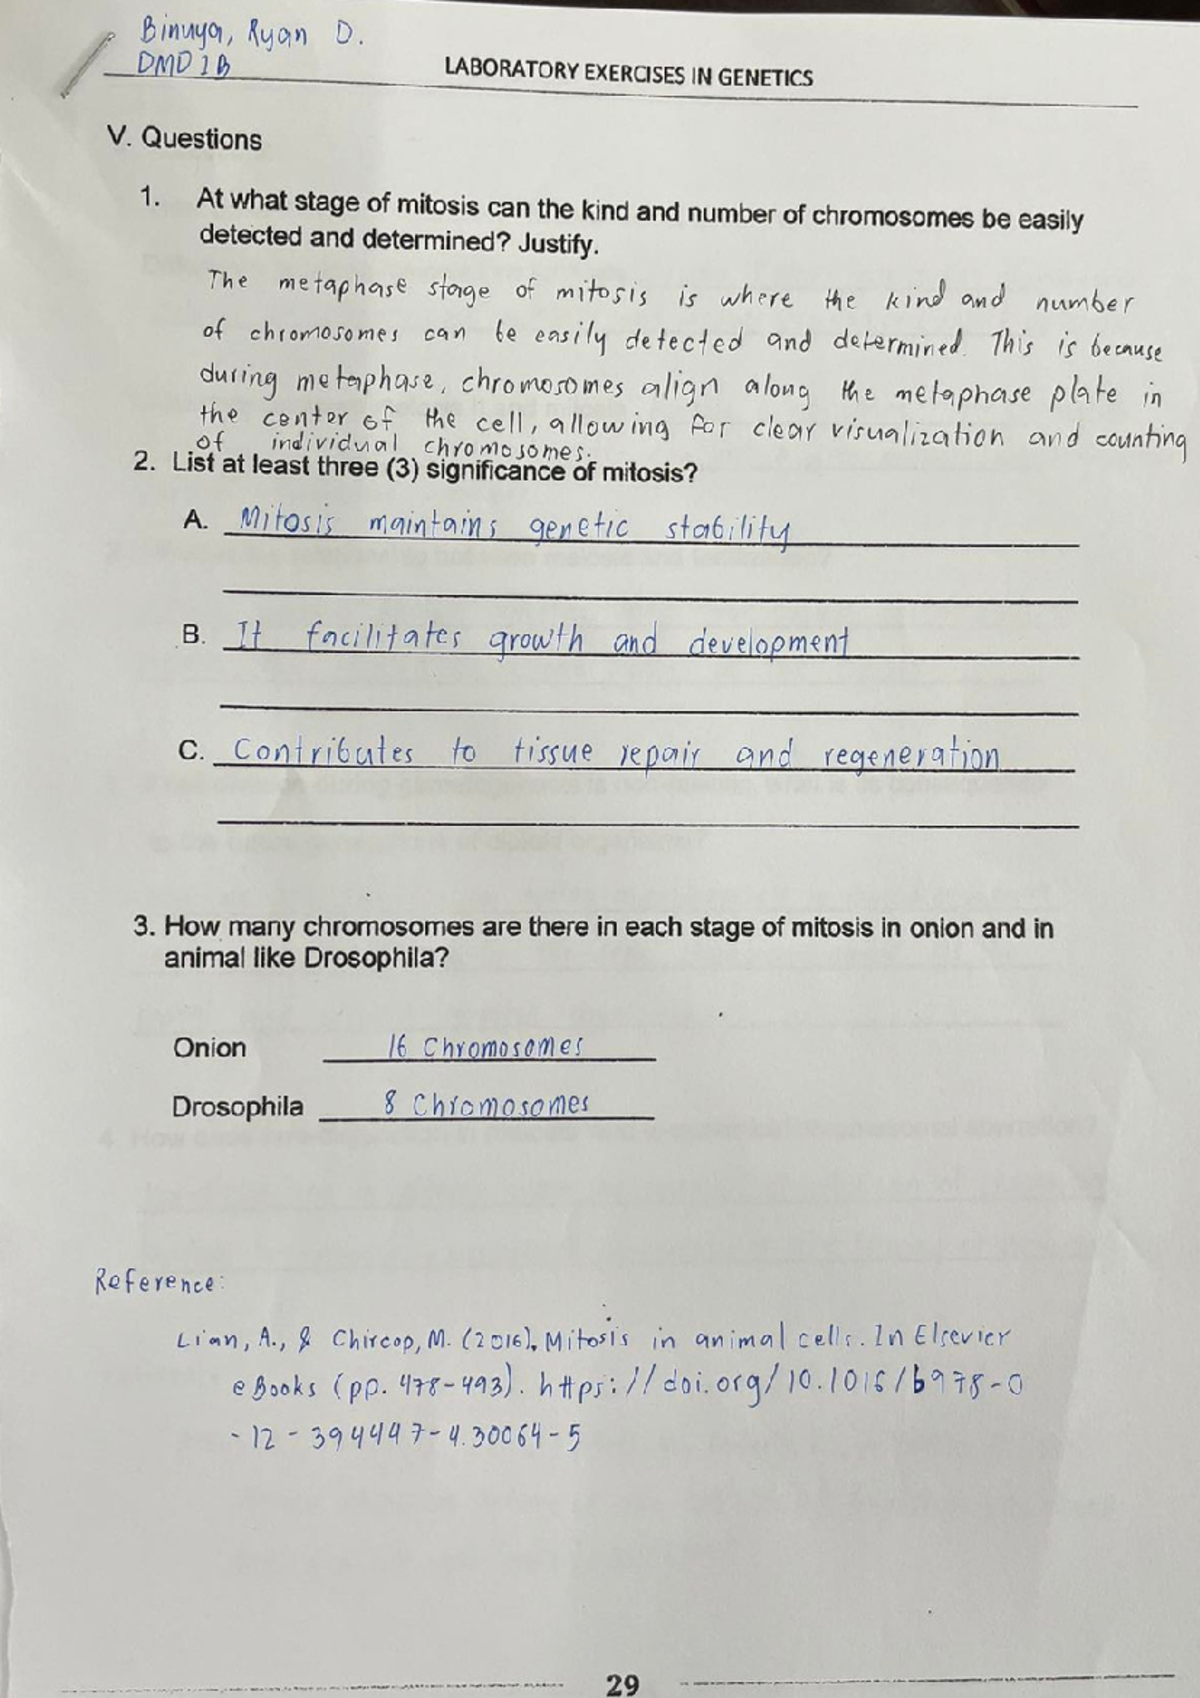 Binuya, Ryan D.
DMD 1B
LABORATORY EXERCISES IN GENETICS
V. Questions
1. At what stage of mitosis can the kind and number of chromosomes be easily
detected and determined? Justify.
The metaphase stage of mitosis is where the kind and number
of chromosomes can be easily detected and determined. This is because
during metaphase, chromosomes align along the metaphase plate in
the center of the cell, allowing for clear visualization and counting
of individual chromosomes.
2. List at least three (3) significance of mitosis?
A. Mitosis maintains genetic stability
B. It facilitates growth and development
C. Contributes to tissue repair and regeneration
3. How many chromosomes are there in each stage of mitosis in onion and in
animal like Drosophila?
Onion 16 Chromosomes
Drosophila 8 Chromosomes
Reference:
Lian, A., & Chircop, M. (2016). Mitosis in animal cells. In Elsevier
eBooks (pp. 478-493). https://doi.org/10.1016/b978-0
-12-394447-4.30064-5
29